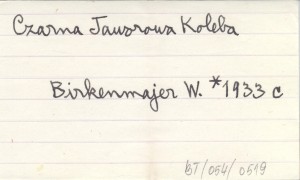 Czarna Jaworowa Koleba
Birkenmajer W. *1933 c
BT/054/0519